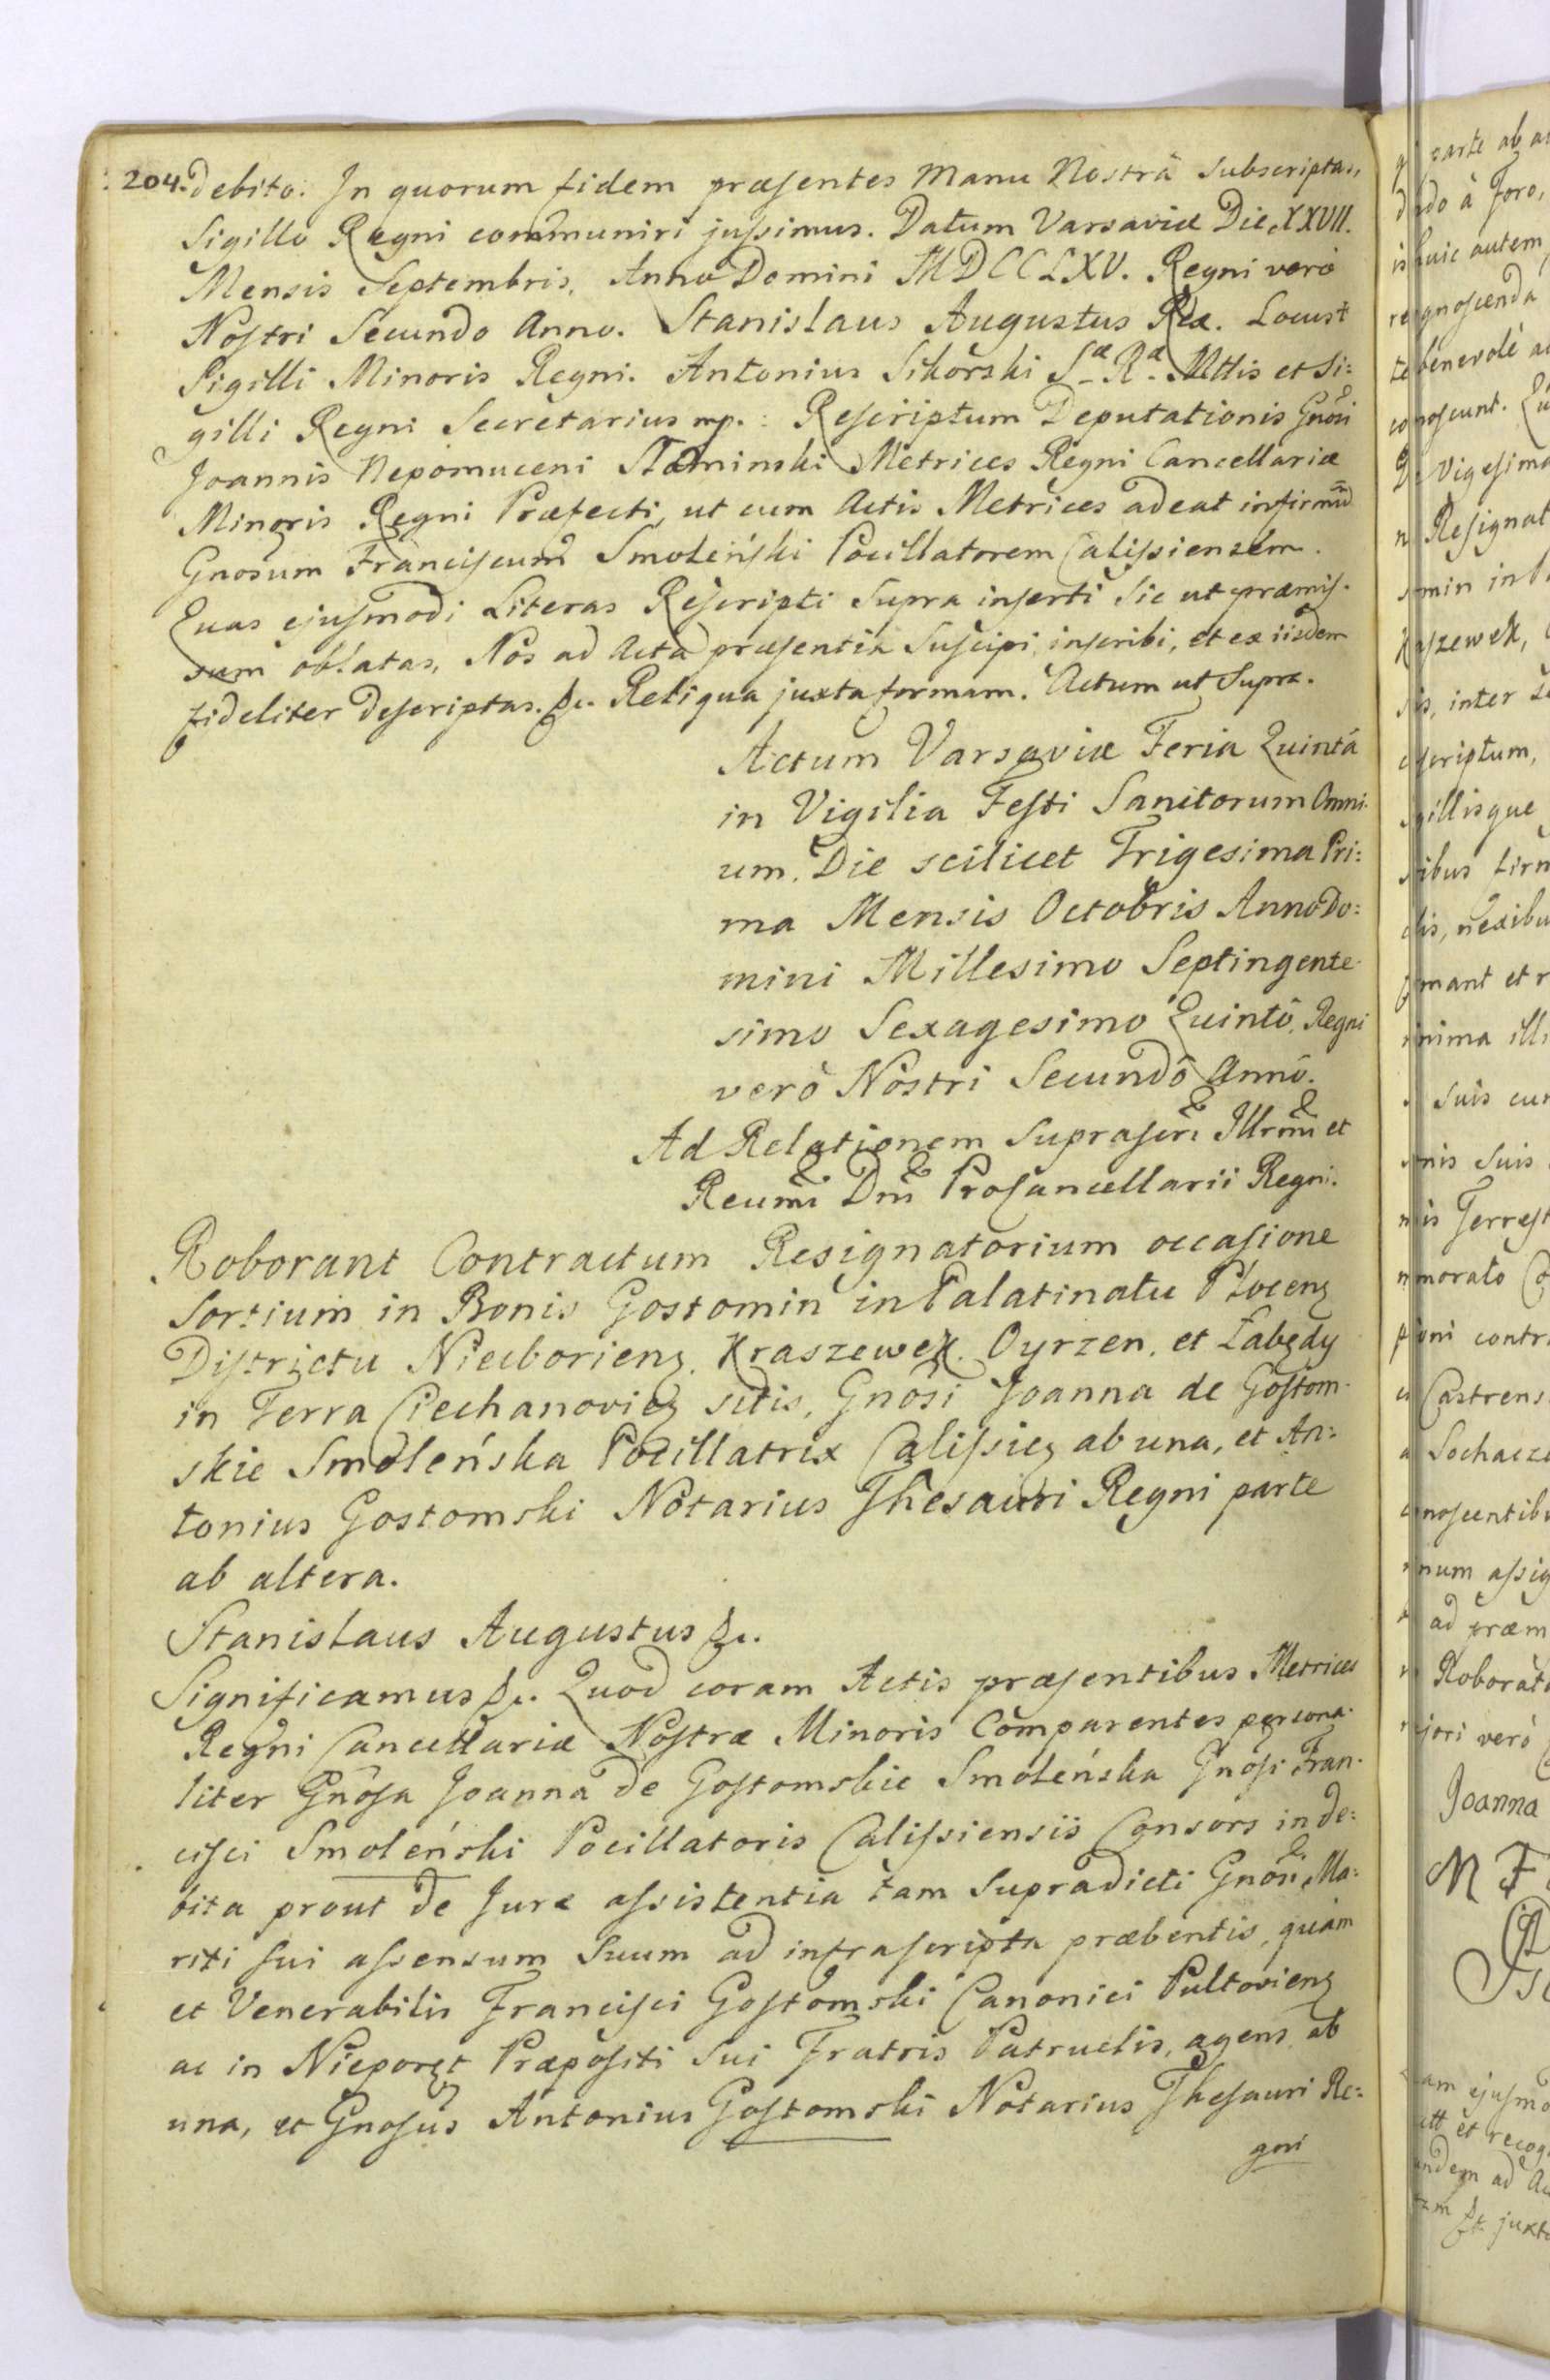 204. debito. In quorum fidem præsentes Manu Nostrâ subscriptas,
Sigillo Regni communiri jussimus. Datum Varsaviæ Die XXVII.
Mensis Septembris, Anno Domini MDCCLXV. Regni verò
Nostri Secundo Anno. Stanislaus Augustus Rex. Locus t
Sigilli Minoris Regni. Antonius Sikorski Sæ Ræ Mttis et Si=
gilli Regni Secretarius mp. : Rescriptum Deputationis Gnosi
Joannis Nepomuceni Słominski Metrices Regni Cancellariæ
Minoris Regni Præfecti, ut cum Actis Metrices adeat infirmũ
Gnosum Franciscum Smoleński Pocillatorem Calissiensem.
Quas ejusmodi Literas Rescripti Supra inserti Sic ut præmis-
sum oblatas, Nos ad Acta præsentia Suscipi, inscribi, et ex iisdem
fideliter descriptas. &c. Reliqua juxta formam. Actum ut Supra.
Actum Varsaviæ Feria Quintâ
in Vigilia Festi Sanctorum Omni-
um. Die scilicet Trigesima Pri=
ma Mensis Octobris Anno Do=
mini Millesimo Septingente-
simo Sexagesimo Quintô, Regni
verò Nostri Secundô Annô.
Ad Relationem Suprascri Illrmi et
Reumi Dni Procancellarii Regni.
Roborant Contractum Resignatorium occasione
Sortium in Bonis Gostomin in Palatinatu Płocenȝ
Districtu Niedborienȝ, Kraszewek. Oyrzen. et Łabędy
in Terra Ciechanovieȝ sitis, Gnosi Joanna de Gostom-
skie Smoleńska Pocillatrix Calissieȝ ab una, et An=
tonius Gostomski Notarius Thesauri Regni parte
ab altera.
Stanislaus Augustus &c.
Significamus &c. Quod coram Actis præsentibus Metrices
Regni Cancellariæ Nostræ Minoris Comparentes persona-
liter Gnosa Joanna de Gostomskie Smoleńska Gnosi Fran-
cisci Smoleński Pocillatoris Calissiensis Consors in de=
bita prout de Jure assistentia tam Supradicti Gnosi Ma=
riti sui assensum suum ad infrascripta præbentis, quàm
et Venerabilis Francisci Gostomski Canonici Pultovienȝ
ac in Nieporęt Præpositi sui Fratris Patruelis, agens ab
una, et Gnosus Antonius Gostomski Notarius Thesauri Re=
gni